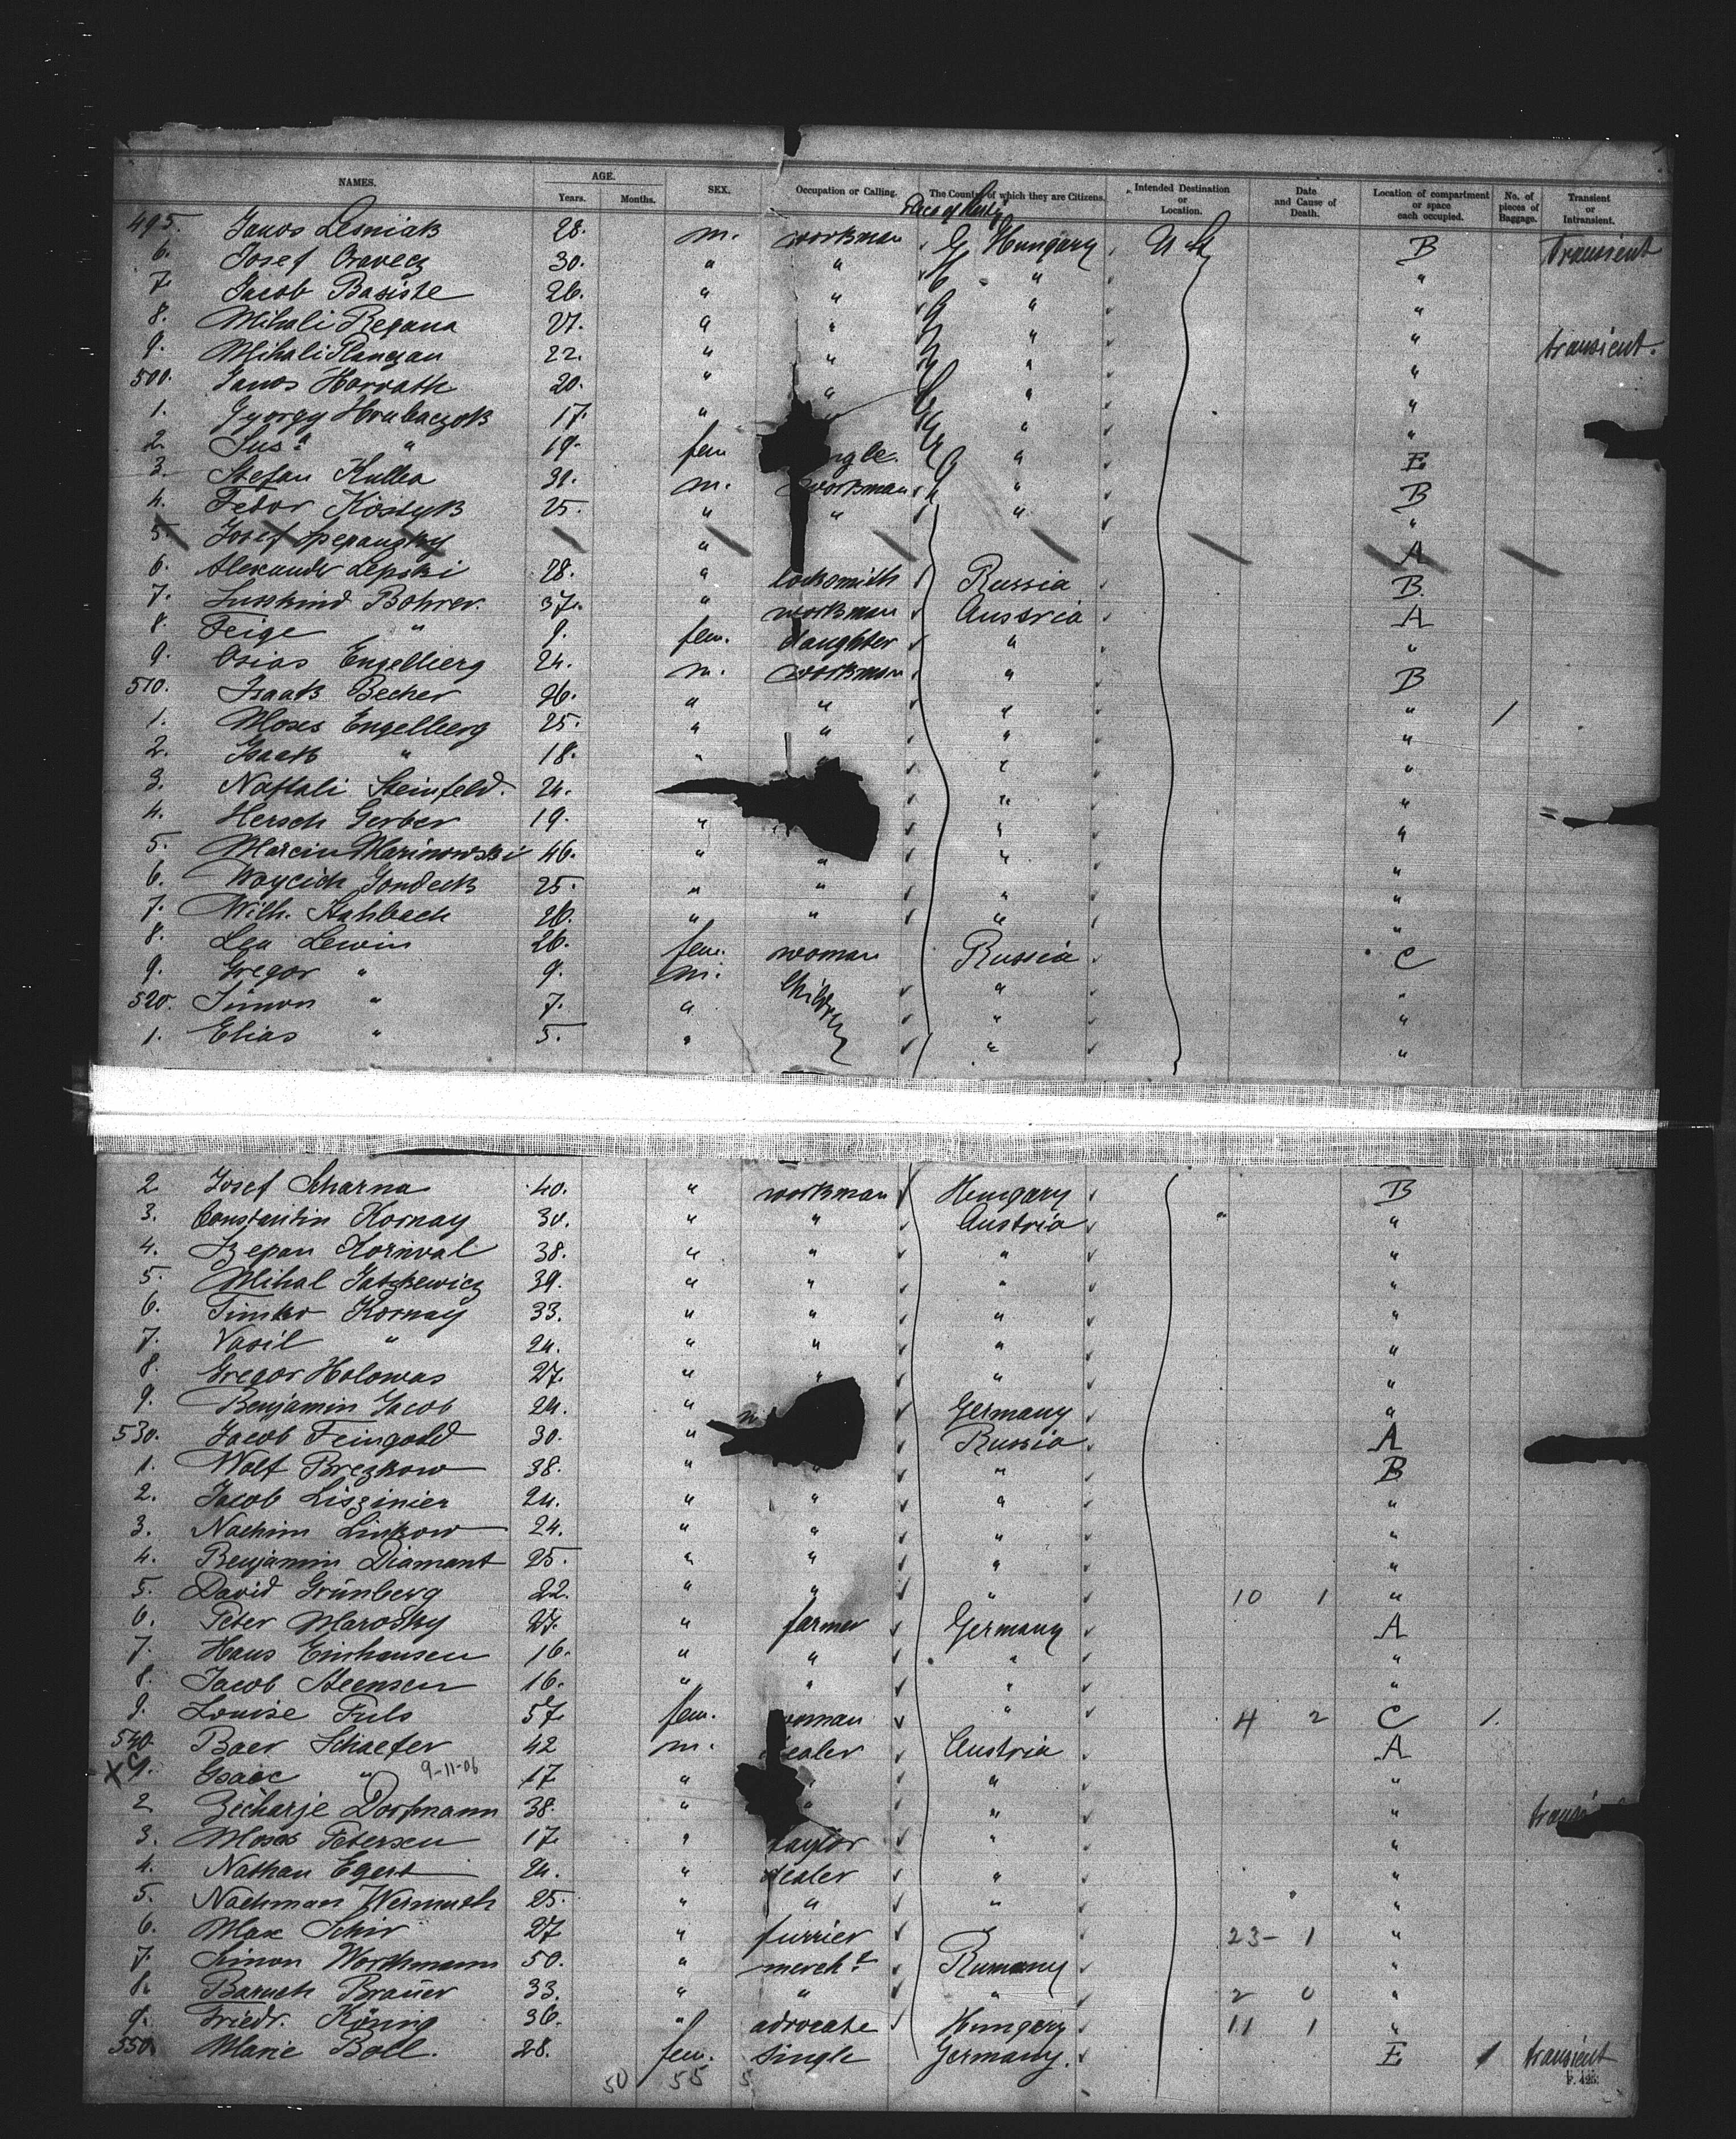 NAMES. AGE. Years. Months. SEX. Occupation or Calling. The Country of which they are Citizens. Intended Destination or Location. Date and Cause of Death. Location of compartment or space each occupied. No. of pieces of Baggage. Transient or Intransient.
495. Janos Lesniak 28. m. workman Hungary B transient
6. Josef Oravecz 30. " " " "
7. Jacob Basiste 26. " " " "
8. Mihali Regana 27. " " " "
9. Mihali 22. " " " " transient.
500. Janos Horvath 20. " " " "
1. Gyorgy Hrubaczok 17. " " "
2. Sus. " 19. fem " E
3. Stefan Kullea m. workman " B
4. Fedor Kostyk 25. " " " "
5. Josef " A
6. Alexander Lepski 28. " locksmith Russia B.
7. Susskind Bohrer. 37. " workman Austria A
8. Feige " 9. fem. daughter " "
9. Osias Engelberg 24. m. workman " B
510. Isaak Becher 26. " " " " 1
1. Moses Engelberg 25. " " " "
2. Isaak " 18. " " "
3. Naftali Steinfeld. 24. " "
4. Hersch Gerber 19. " " "
5. Marcin Marinowski 46. " " " "
6. Woycich Gondeck 25. " " " "
7. Wilh. Stahbach 26. " " " "
8. Lea Lewin 26. fem. woman Russia C
9. Gregor " 9. m. children " "
520. Simon " 7. " " "
1. Elias " 5. " " "
2 Josef Scharna 40. " workman Hungary B
3. Constantin Kornay 30. " " Austria "
4. Szepan Kornval 38. " " " "
5. Mihal Jatzkewicz 39. " " " "
6. Timko Kornay 33. " " " "
7. Vasil " 24. " " " "
8. Gregor Holowas 27. " " " "
9. Benjamin Jacob 24. " Germany "
530. Jacob Feingold 30. " Russia A
1. Wolf Brezkow 38. " " " B
2. Jacob Liszinier 24. " " " "
3. Nachim Linkow 24. " " " "
4. Benjamin Diamant 25. " " " "
5. David Grünberg 22. " " " 10 1 "
6. Peter Marodky 27. " farmer Germany A
7. Hans Enshausen 16. " " " "
8. Jacob Steensen 16. " " " "
9. Louise Fuls 57 fem. woman " 4 2 C 1.
540. Baer Schaefer 42 m. dealer Austria A
X 1. Isaac " 9-11-06 17 " " " "
2 Zecharje Dorfmann 38. " " " "
3. Moses Petersen 17 " taylor " "
4. Nathan Egert 24. " dealer " "
5. Nachman Wermuth 25. " " " "
6. Max Schir 27 " furrier " 23- 1 "
7. Simon Worthmann 50. " mercht Rumany "
8. Baruch Brauer 33. " " " 2 0 "
9. Friedr. König 36. " advocate Hungary 11 1 "
550. Marie Boll. 28. fem. single Germany. E 1 transient
50 55 5